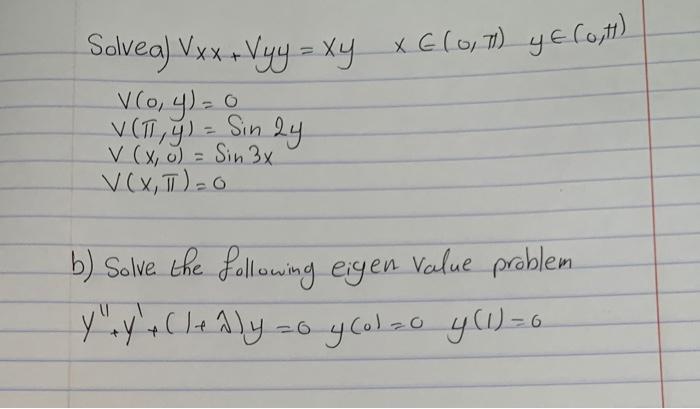 Solve a) Vxx + Vyy = xy x ∈ (0, π) y ∈ (0, π)
V(0, y) = 0
V(π, y) = Sin 2y
V(x, 0) = Sin 3x
V(x, π) = 0
b) Solve the following eigen value problem
y'' + y' + (1 + λ)y = 0 y(0) = 0 y(1) = 0